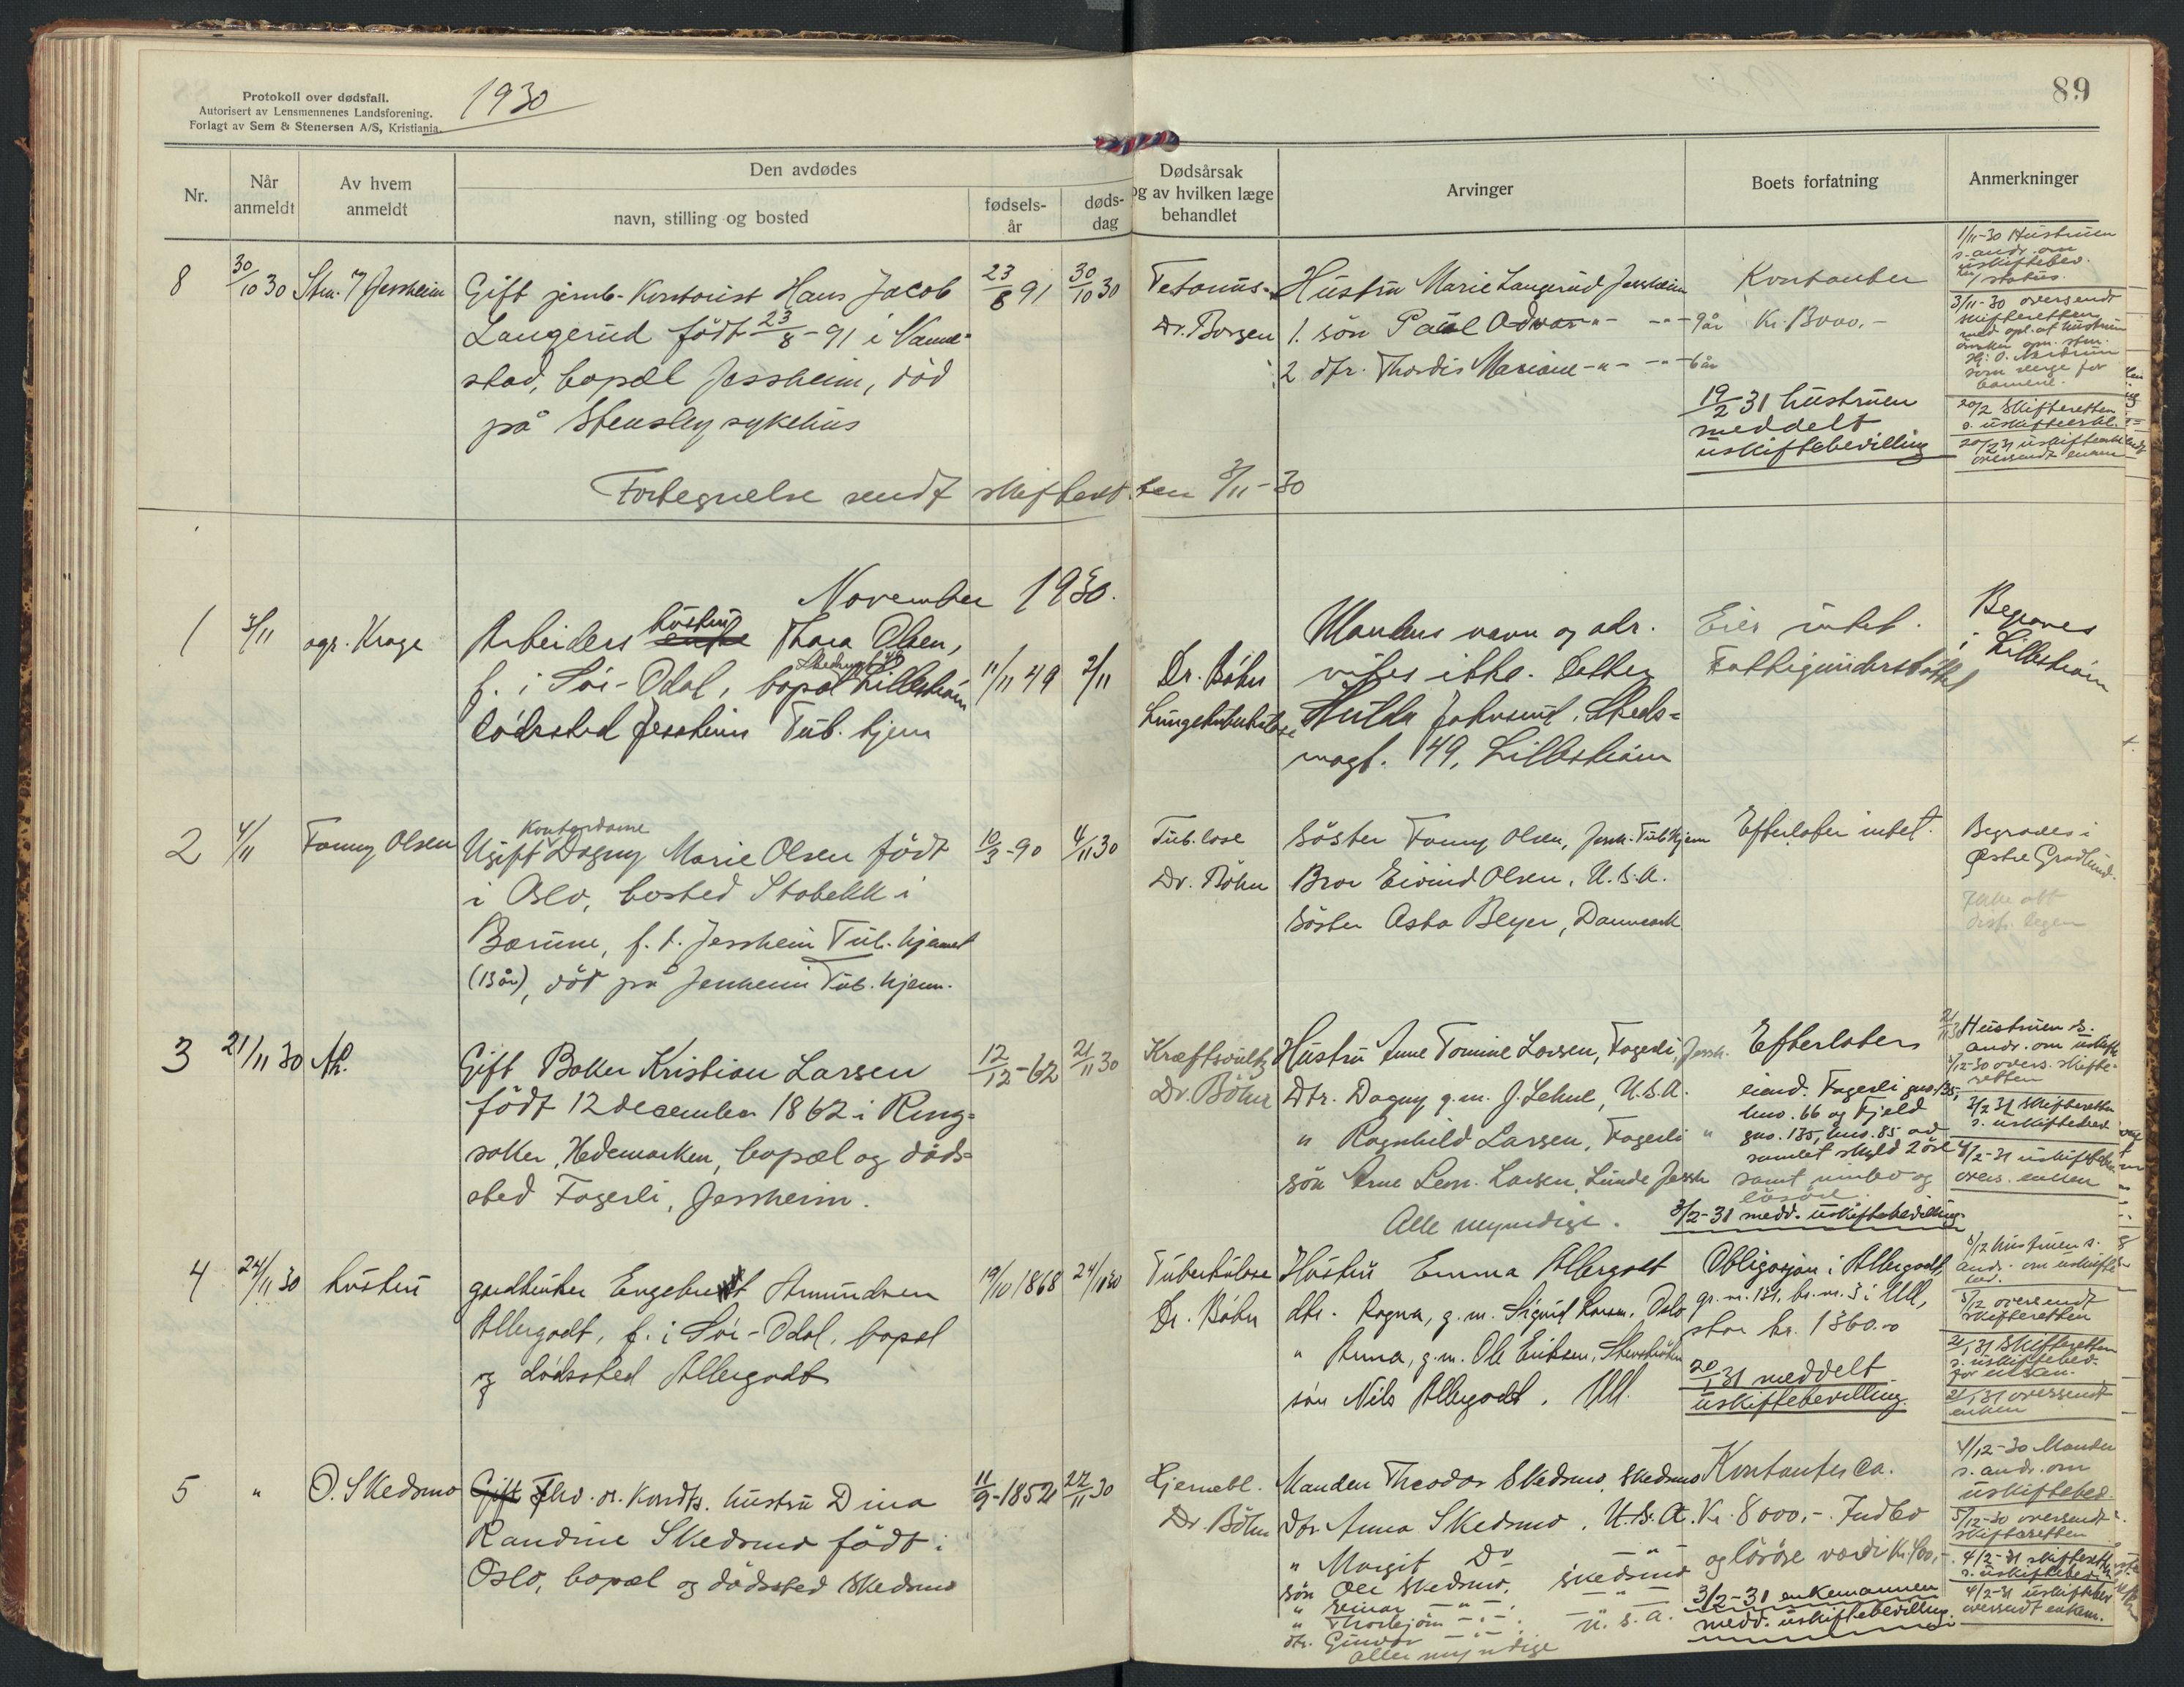 Protokoll over dødsfall.
Autorisert av Lensmennenes Landsforening.
Forlagt av Sem & Stenersen A/S, Kristiania.
1930
Nr.
Når anmeldt
Av hvem anmeldt
Den avdødes
navn, stilling og bosted
fødsels-år
døds-dag
8 30/10 30 Jessheim Gift jernb. Kontorist Hans Jacob 23/8 91 30/10 30
Langerud født 23/8-91 i
stad, bopæl Jessheim, död
på Stensby sykehus
Fortegnelse sendt skifteretten 3/11-30
November 1930.
1 3/11 agr. Krage Arbeiders enke hustru Thora Olsen,
f. i Sör-Odal, bopæl Lilleström 11/11 49 2/11
dödssted Jessheim Tub. hjem
2 4/11 Fanny Olsen Ugift Kontordame Dagny Marie Olsen födt 10/3-90 4/11 30
i Oslo, bosted Stabekk i
Bærum, f. t. Jessheim Tub. hjemmet
(13 år), död på Jessheim Tub. hjem.
3 21/11 30 Gift Baker Kristian Larsen 12/12-62 21/11 30
födt 12 december 1862 i Ring-
saker, Hedemarken, bopæl og döds-
sted Fagerli, Jessheim.
4 24/11 30 hustru gardbruker Engebret Amundsen 19/10 1868 24/11 30
Allergodt, f. i Sör-Odal, bopæl
og dödssted Allergodt
5 " O. Skedsmo Gift Fhv. Hustru Dina 11/9-1852 22/11 30
Randine Skedsmo födt i
Oslo, bopæl og dödssted Skedsmo
89
Dødsårsak og av hvilken læge behandlet
Arvinger
Boets forfatning
Anmerkninger
Tetanus. Hustru Marie Langerud Jessheim Kontanter
Dr. Borgen 1. sön Paul Edvar -"- -"- 9 år Kr. 3000.-
2 dtr. Thordis Mariane -"- -"- 6 år
19/2 31 hustruen
meddelt
uskiftebevilling
1/11-30 Hustruen
s. andr. om
uskiftebev.
3/11-30 oversendt
skifteretten
med opl. at hustruen
ønsker
som verge for
barnene.
20/2 Skifteretten
s. uskifteerkl.
20/2 31 uskifteerkl.
oversendt enken
Mandens navn og adr. Eier intet. Begraves
Dr. Böhn vites ikke. Datter Fattigunderstöttet i Lilleström
Lungetuberkulose Hulda Johnsrud, Skeds-
mogt. 49, Lilleström
Tub.lose söster Fanny Olsen, Jessh. Tub.hjem Efterlater intet. Begraves i
Dr. Böhn Bror Eivind Olsen, U.S.A. Østre Gravlund.
söster Asta Beyer, Danmark
Ikke att
distr. legen
Kræftsvulst Hustru Anne Tomine Larsen, Fagerli, Jessh. Efterlater
Dr. Böhn Dtr. Dagny g.m. J. Lehne, U.S.A. eiend. Fagerli gno. 135,
" Ragnhild Larsen, Fagerli " bno. 66 og Fjeld
gno. 135, bno. 85 av
samlet skyld 2 öre
sön Arne Leon. Larsen, Lunde Jessh. samt innbo og
lösöre.
Alle myndige. 3/2-31 medd. uskiftebevilling
21/11 30 Hustruen s.
andr. om uskifte
1/12-30 overs. skifte-
retten
3/2 31 Skifteretten
s. uskiftebev.
4/2-31 uskiftebev.
overs. enken
Tuberkulose Hustru Emma Allergodt Obligasjon i Allergodt,
Dr. Böhn dtr. Ragna, g.m. Sigurd Larsen, Oslo gr. nr. 131, br. nr. 3 i Ull,
" Anna, g.m. Ole Eriksen, stor kr. 1360.-
sön Nils Allergodt, Ull. 20/1 31 meddelt
uskiftebevilling.
5/12 hustruen s.
andr. om uskifte
bev.
5/12 oversendt
skifteretten
21/1 31 Skifteretten
s. uskiftebev.
for enken.
21/1 31 oversendt
enken
Hjernebl. Manden Theodor Skedsmo, Skedsmo Kontanter ca.
Dr. Böhn Dtr Anna Skedsmo, U.S.A. Kr. 8000,-. Indbo
" Margit Do -"- og lösöre værdi kr. 400,-.
sön Ole Skedsmo, Skedsmo
" Einar -"- -"- 3/2-31 enkemannen
" Thorbjörn -"- U.S.A. medd. uskiftebevilling.
dtr. Gunvor -"-
alle myndige
4/12-30 Manden
s. andr. om
uskiftebev.
5/12-30 oversendt
skifteretten
4/2-31 skifteretten
s. uskiftebev.
4/2-31 uskiftebev.
oversendt enkem.